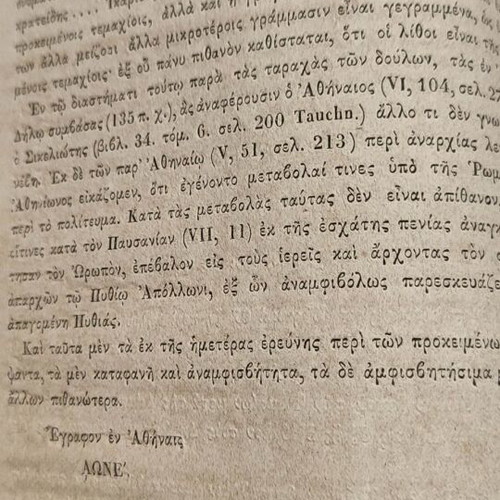 κρατείδης.... Ἰκαρι
προκειμένοις τεμαχίοις, ἀλλὰ καὶ ἡ
των ἀλλὰ μείζοσι ἄλλα μικροτέροις γράμμασιν εἶναι γεγραμμένα, ὡς
μένοις τεμαχίοις· ἐξ οὗ πάνυ πιθανὸν καθίσταται, ὅτι οἱ λίθοι εἶναι τῆς
Ἐν τῷ διαστήματι τούτῳ παρὰ τὰς ταραχὰς τῶν δούλων, τὰς ἐν
Δήλῳ συμβάσας (135 π. χ.), ἃς ἀναφέρουσιν ὁ Ἀθήναιος (VI, 104, σελ. 27
ὁ Σικελιώτης (βιβλ. 34. τόμ. 6. σελ. 200 Tauchn.) ἄλλο τι δὲν γνω
νέβη. Ἐκ δὲ τῶν παρ' Ἀθηναίῳ (V, 51, σελ. 213) περὶ ἀναρχίας λε
Ἀθηνίωνος εἰκάζομεν, ὅτι ἐγένοντο μεταβολαί τινες ὑπὸ τῆς Ῥωμ
περὶ τὸ πολίτευμα. Κατὰ τὰς μεταβολὰς ταύτας δὲν εἶναι ἀπίθανον,
εἵτινες κατὰ τὸν Παυσανίαν (VII, 11) ἐκ τῆς ἐσχάτης πενίας ἀναγκ
τησαν τὸν Ὠρωπὸν, ἐπέβαλον εἰς τοὺς ἱερεῖς καὶ ἄρχοντας τὸν
ἀπαρχῶν τῷ Πυθίῳ Ἀπόλλωνι, ἐξ ὧν ἀναμφιβόλως παρεσκευάζε
ἀπαγομένη Πυθιάς.
Καὶ ταῦτα μὲν τὰ ἐκ τῆς ἡμετέρας ἐρεύνης περὶ τῶν προκειμένω
ψαντα, τὰ μὲν καταφανῆ καὶ ἀναμφισβήτητα, τὰ δὲ ἀμφισβητήσιμα
ἄλλων πιθανώτερα.
Ἔγραφον ἐν Ἀθήναις
ΑΩΝΕʹ.